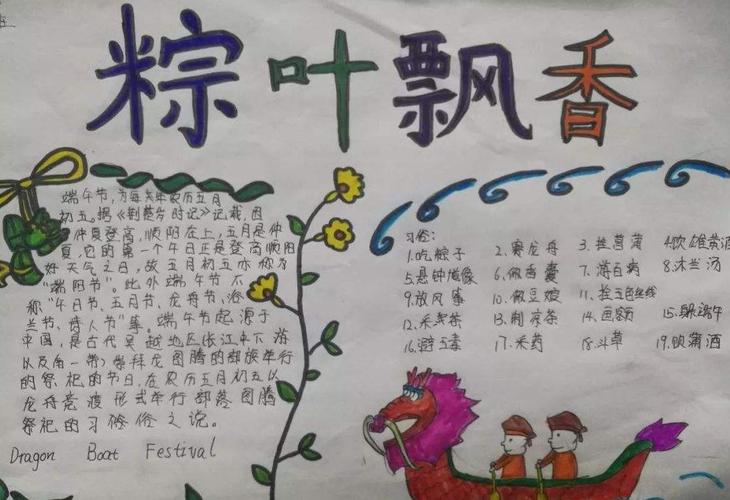 粽叶飘香
端午节,为每年农历五月
初五。据《荆楚岁时记》记载,因
仲夏登高,顺阳在上,五月是仲
夏,它的第一个午日正是登高顺阳
好天气之日,故五月初五亦称为
“端阳节”。此外端午节还
称“午日节、五月节、龙舟节、浴
兰节、诗人节”等。端午节起源于
中国,是古代吴越地区(长江中下游
以及一带)崇拜龙图腾的部族举行
的祭祀的节日,在农历五月初五以
龙舟竞渡形式举行部落图腾
祭祀的习俗之说。
Dragon Boat Festival
习俗:
1.吃粽子 2.赛龙舟 3.挂菖蒲 4.饮雄黄酒
5.悬钟馗像 6.做香囊 7.游百病 8.沐兰汤
9.放风筝 10.做豆娘 11.拴五色丝线
12.采茶 13.制凉茶 14.画额 15.躲端午
16.避五毒 17.采药 18.斗草 19.饮蒲酒